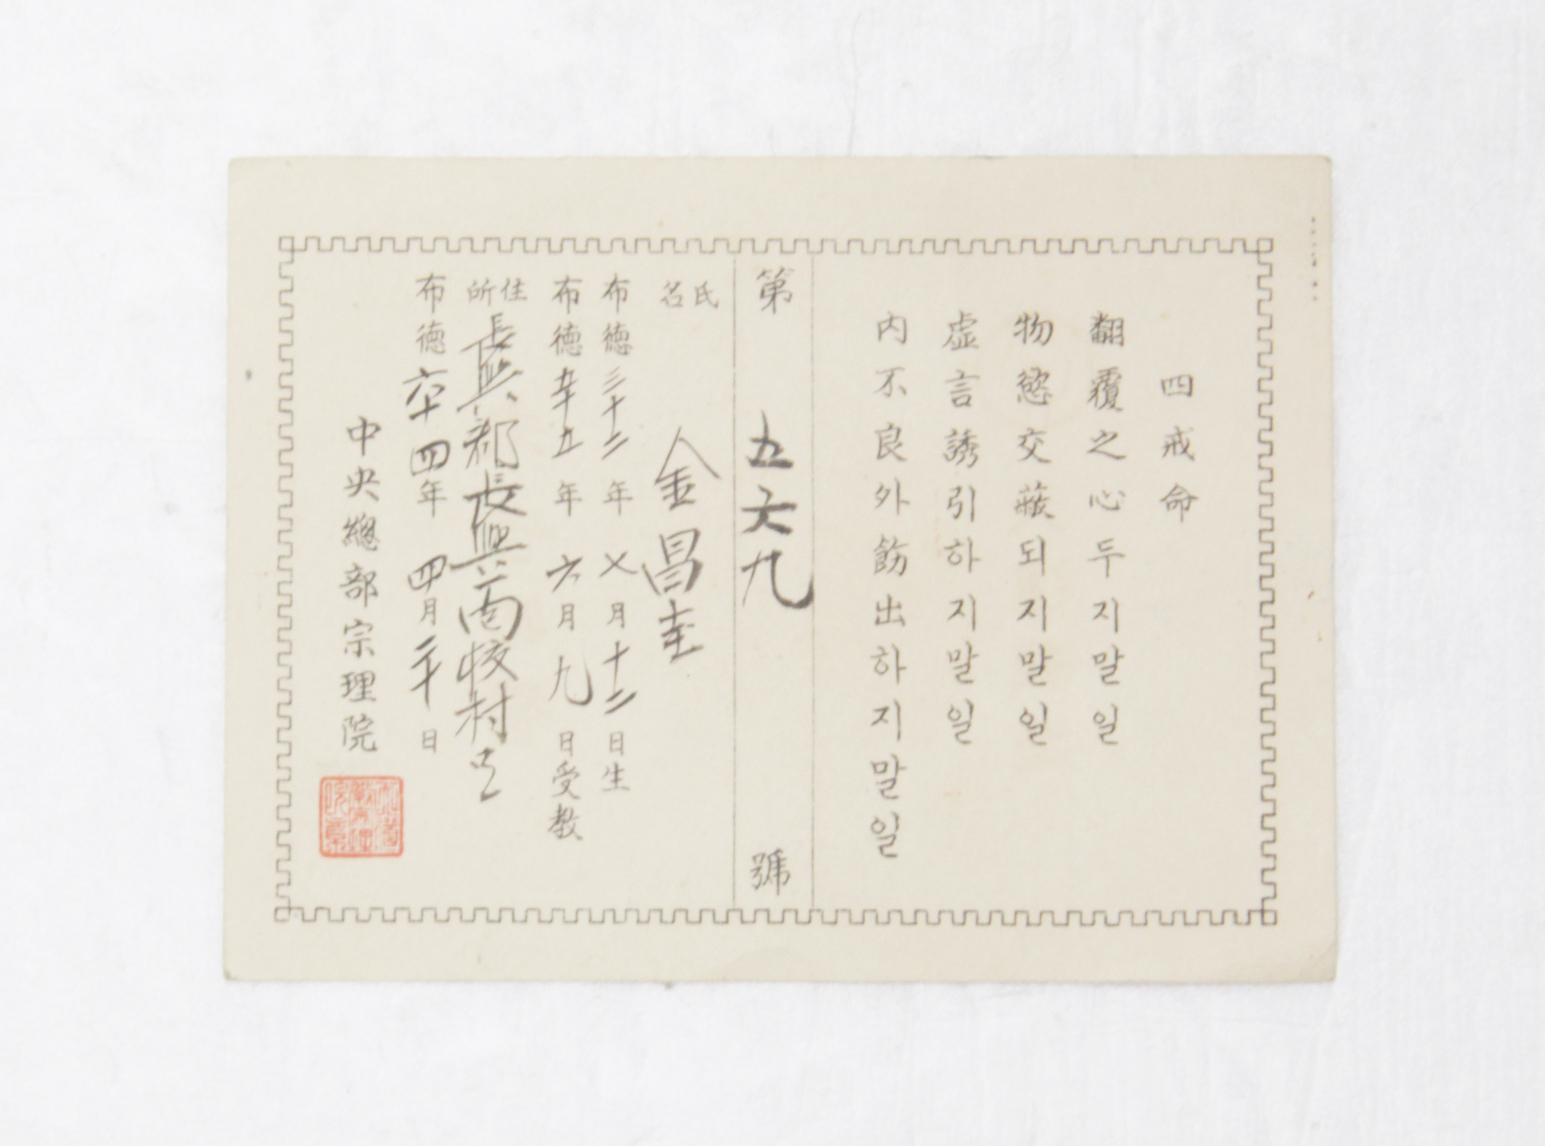 四戒命
翻覆之心두지말일
物慾交蔽되지말일
虛言誘引하지말일
內不良外飾出하지말일
第 五六九 號
氏名 金昌圭
布德三十二年 七月十二日生
布德五十五年 六月九日受敎
住所 長興郡長興面校村里
布德六十四年 四月二十日
中央總部宗理院